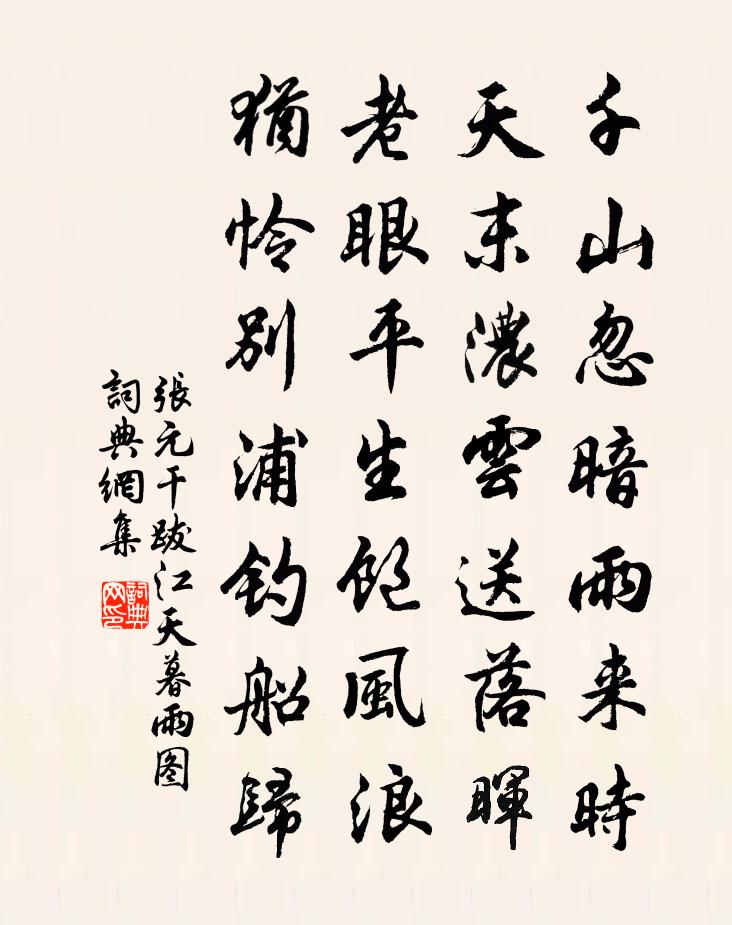 千山忽暗雨来時
天末濃雲送落暉
老眼平生飽風浪
猶怜別浦釣船歸
張元干跋江天暮雨图
詞典網集
詞典網印